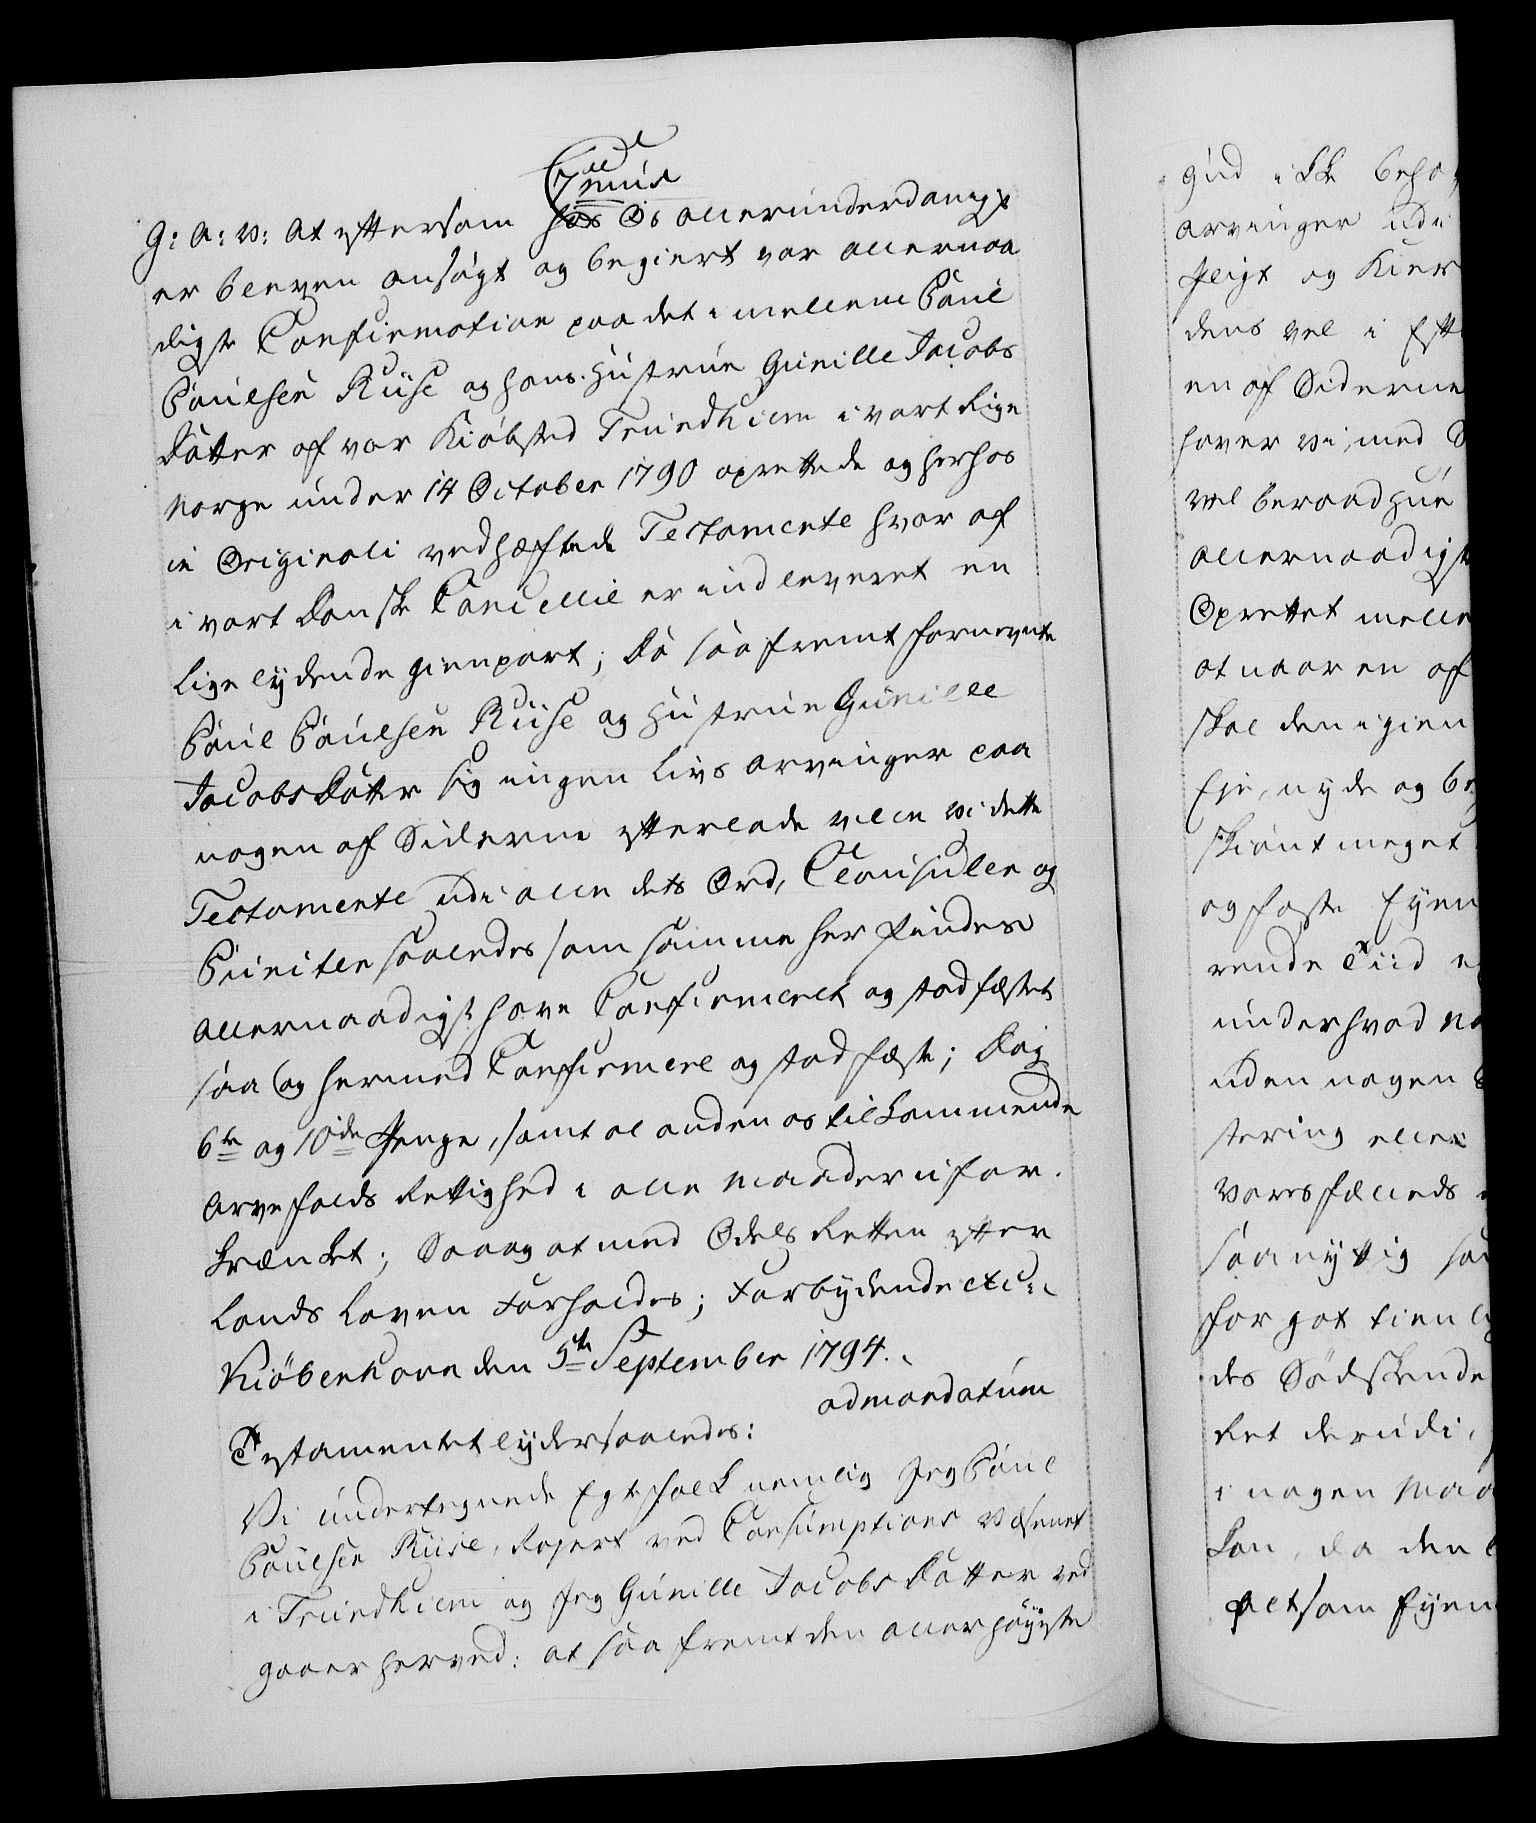 G: A: V: At eftersom hos Os allerunderdanigst
er bleven ansøgt og begiert vor allernaa
digste Confirmation paa det imellem Poul
Poulsen Riise og hans Hustrue Gunille Jacobs
Datter af vor Kiøbsted Trundhiem i vort Rige
Norge under 14 October 1790 oprettede og herhos
in Originali vedhæftede Testamente hvor af
i vort Danske Cancellie er indleveret en
lige lydende Gienpart; Da saafremt fornevnte
Poul Poulsen Riise og Hustrue Gunille
Jacobs Datter sig ingen Livs Arvinger paa
nogen af Siderne efterlade ville vi dette
Testamente udi alle dets Ord, Clausuler og
Puncter saaledes som samme her findes
allernaadigst have Confirmeret og stadfæstet
saa og hermed Confirmere og stadfæste; Dog
6te og 10de Penge, samt al anden os tilkommende
Arvefalds Rettighed i alle Maader ufor.
krænket; Saa og at med Odels Retten efter
Lands Loven forholdes; Forbydende etc:
Kiøbenhavn den 5te September 1794.
admandatum
Testamentet lyder saaledes:
Vi undertegnede Egtefolk nemlig Jeg Poul
Poulsen Riise, Ropert ved Consumptions Væsenet
i Trundhiem og Jeg Gunille Jacobs Datter ved
gaaer herved: at saafremt den allerhøyeste
Gud ikke beha
Arvinger udi
Pligt og Kier
dens vel i Eft
en af Siderne
haver vi, med
vel beraad Hue
allernaadigst
Oprettet melle
at naar en af
skal den igien
Eje, nyde og be
skiønt meget
og faste Eyen
rende Tiid
under hvad Na
uden nogen
stering eller
Vores fælleds
saa nyttig
for got tienl
des Sødskende
Ret derudi,
i nogen Maa
kan, da den
alt som Eyen